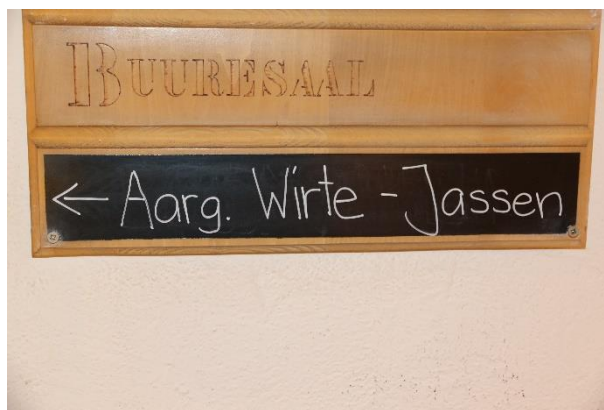 BUURESAAL
← Aarg. Wirte - Jassen